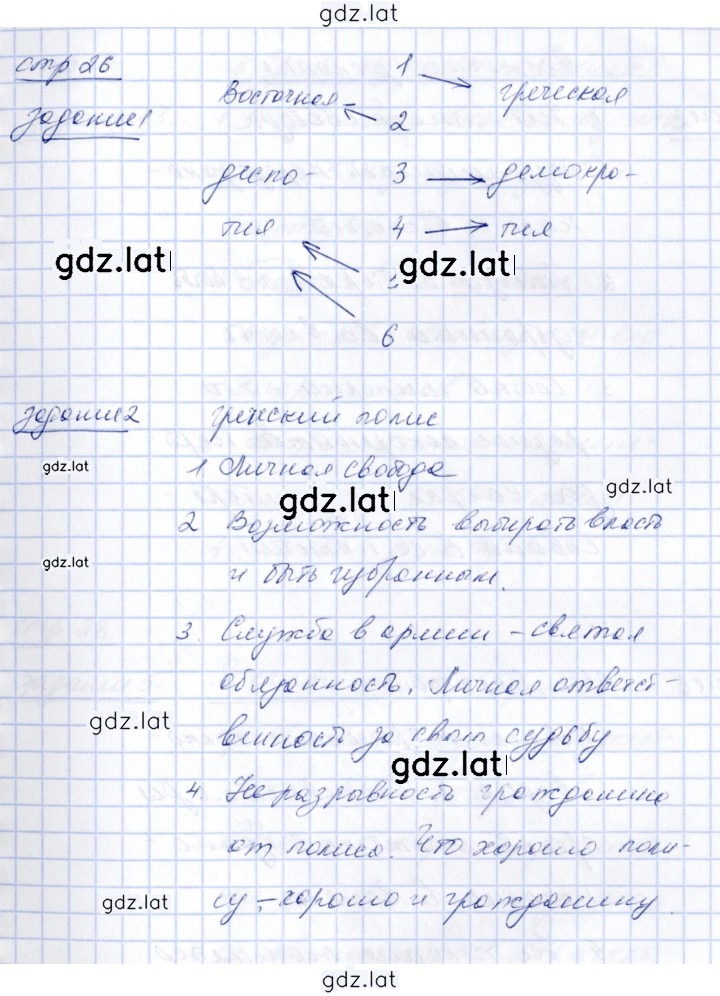 gdz.lat
стр 26
1
Восточная
греческая
задание 1
2
деспо-
3
демокра-
тия
4
тия
gdz.lat
gdz.lat
6
задание 2
греческий полис
gdz.lat
1. Личная свобода
gdz.lat
gdz.lat
2 Возможность выбирать власть
gdz.lat
и быть избранным.
3. Служба в армии – святая
обязанность. Личная ответст-
gdz.lat
венность за свою судьбу
gdz.lat
4. Неразрывность гражданина
от полиса. Что хорошо поли-
gdz.lat
су, – хорошо и гражданину.
gdz.lat